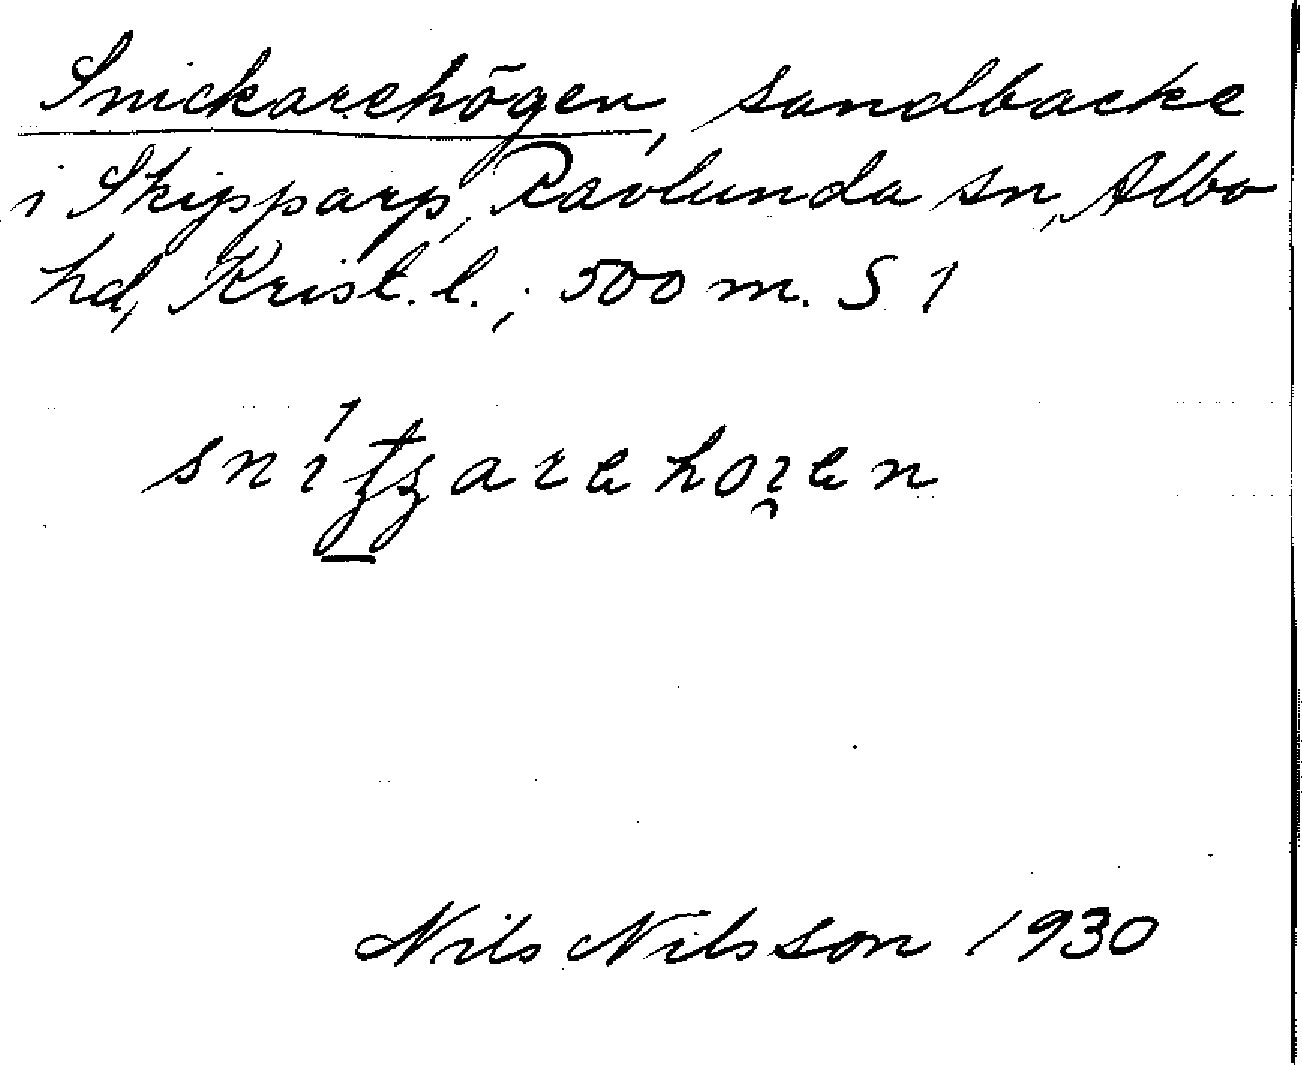 Snickarehögen, sandbacke
i Skipparp, Ravlunda sn, Albo
hd, Krist. l.; 500 m. S 1
Nils Nilsson 1930